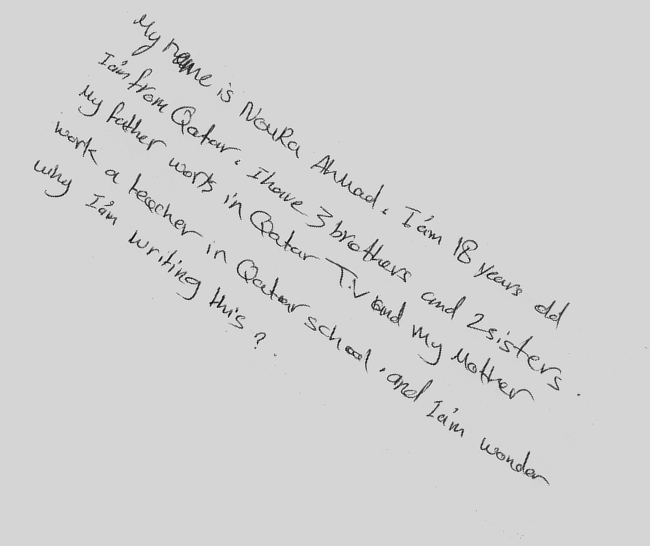 My name is Noura Ahmad. I'am 18 years old
I'am from Qatar. I have 3 brothers and 2 sisters.
My father work in Qatar T.V and my Mother
work a teacher in Qatar school. and I'am wonder
why I'am writing this?